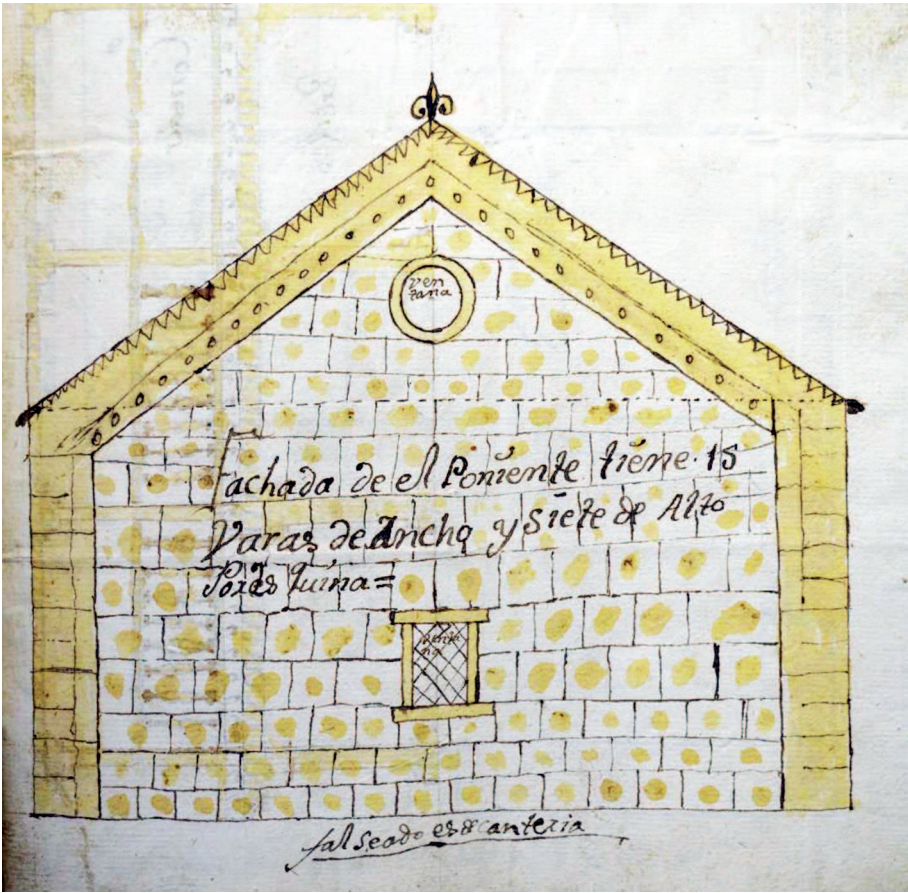 ven
tana
fachada de el Poniente tiene 15
Varas de Ancho y siete de Alto
Por esquina =
venta
na
falseado es de canteria